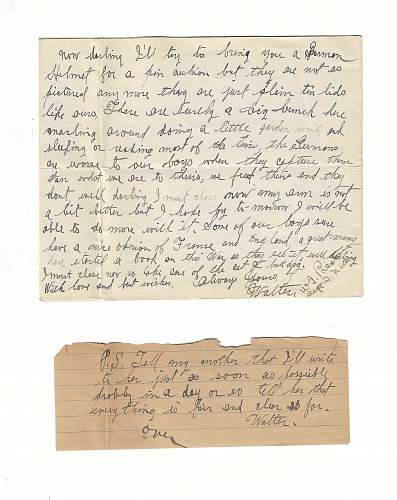 now darling I'll try to bring you a German
Helmet for a pin cushion but they are not as
pictured any more they are just plain tin lids
like ours, There are surely a big bunch here
around doing a little garden work and
sleeping or most of the time, the Germans
are worse to our boys when they capture them
than what we are to theirs, we feed theirs and they
dont well darling I must close now my arm is not
a bit better but I hope by to-morrow I will be
able to do more with it. Some of our boys sure
have a nice opinion of France and England, a great many
here started a book on this War as they see it, well darling
I must close now so take care of the cat & bull dog.
With love and best wishes, Always Yours,
Walter,
P.S. Tell my mother that I'll write
to her just as soon as possible
probly in a day or so tell her that
everything is fair and clear so far.
Walter.
over